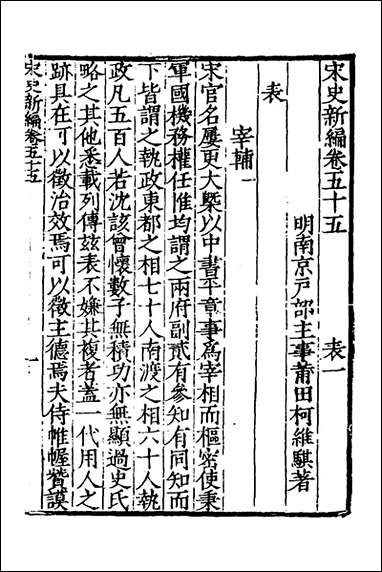 宋史新編卷五十五 表一
明南京戶部主事莆田柯維騏著
表
宰輔一
宋官名屢更大槩以中書平章事爲宰相而樞密使秉
軍國機務權任惟均謂之兩府副貳有參知有同知而
下皆謂之執政東都之相七十人南渡之相六十人執
政凡五百人若沈該曾懷數子無積功亦無顯過史氏
略之其他悉載列傳玆表不嫌其複者蓋一代用人之
跡具在可以徵治效焉可以徵主德焉夫侍帷幄贊謨
宋史新編卷五十五
一